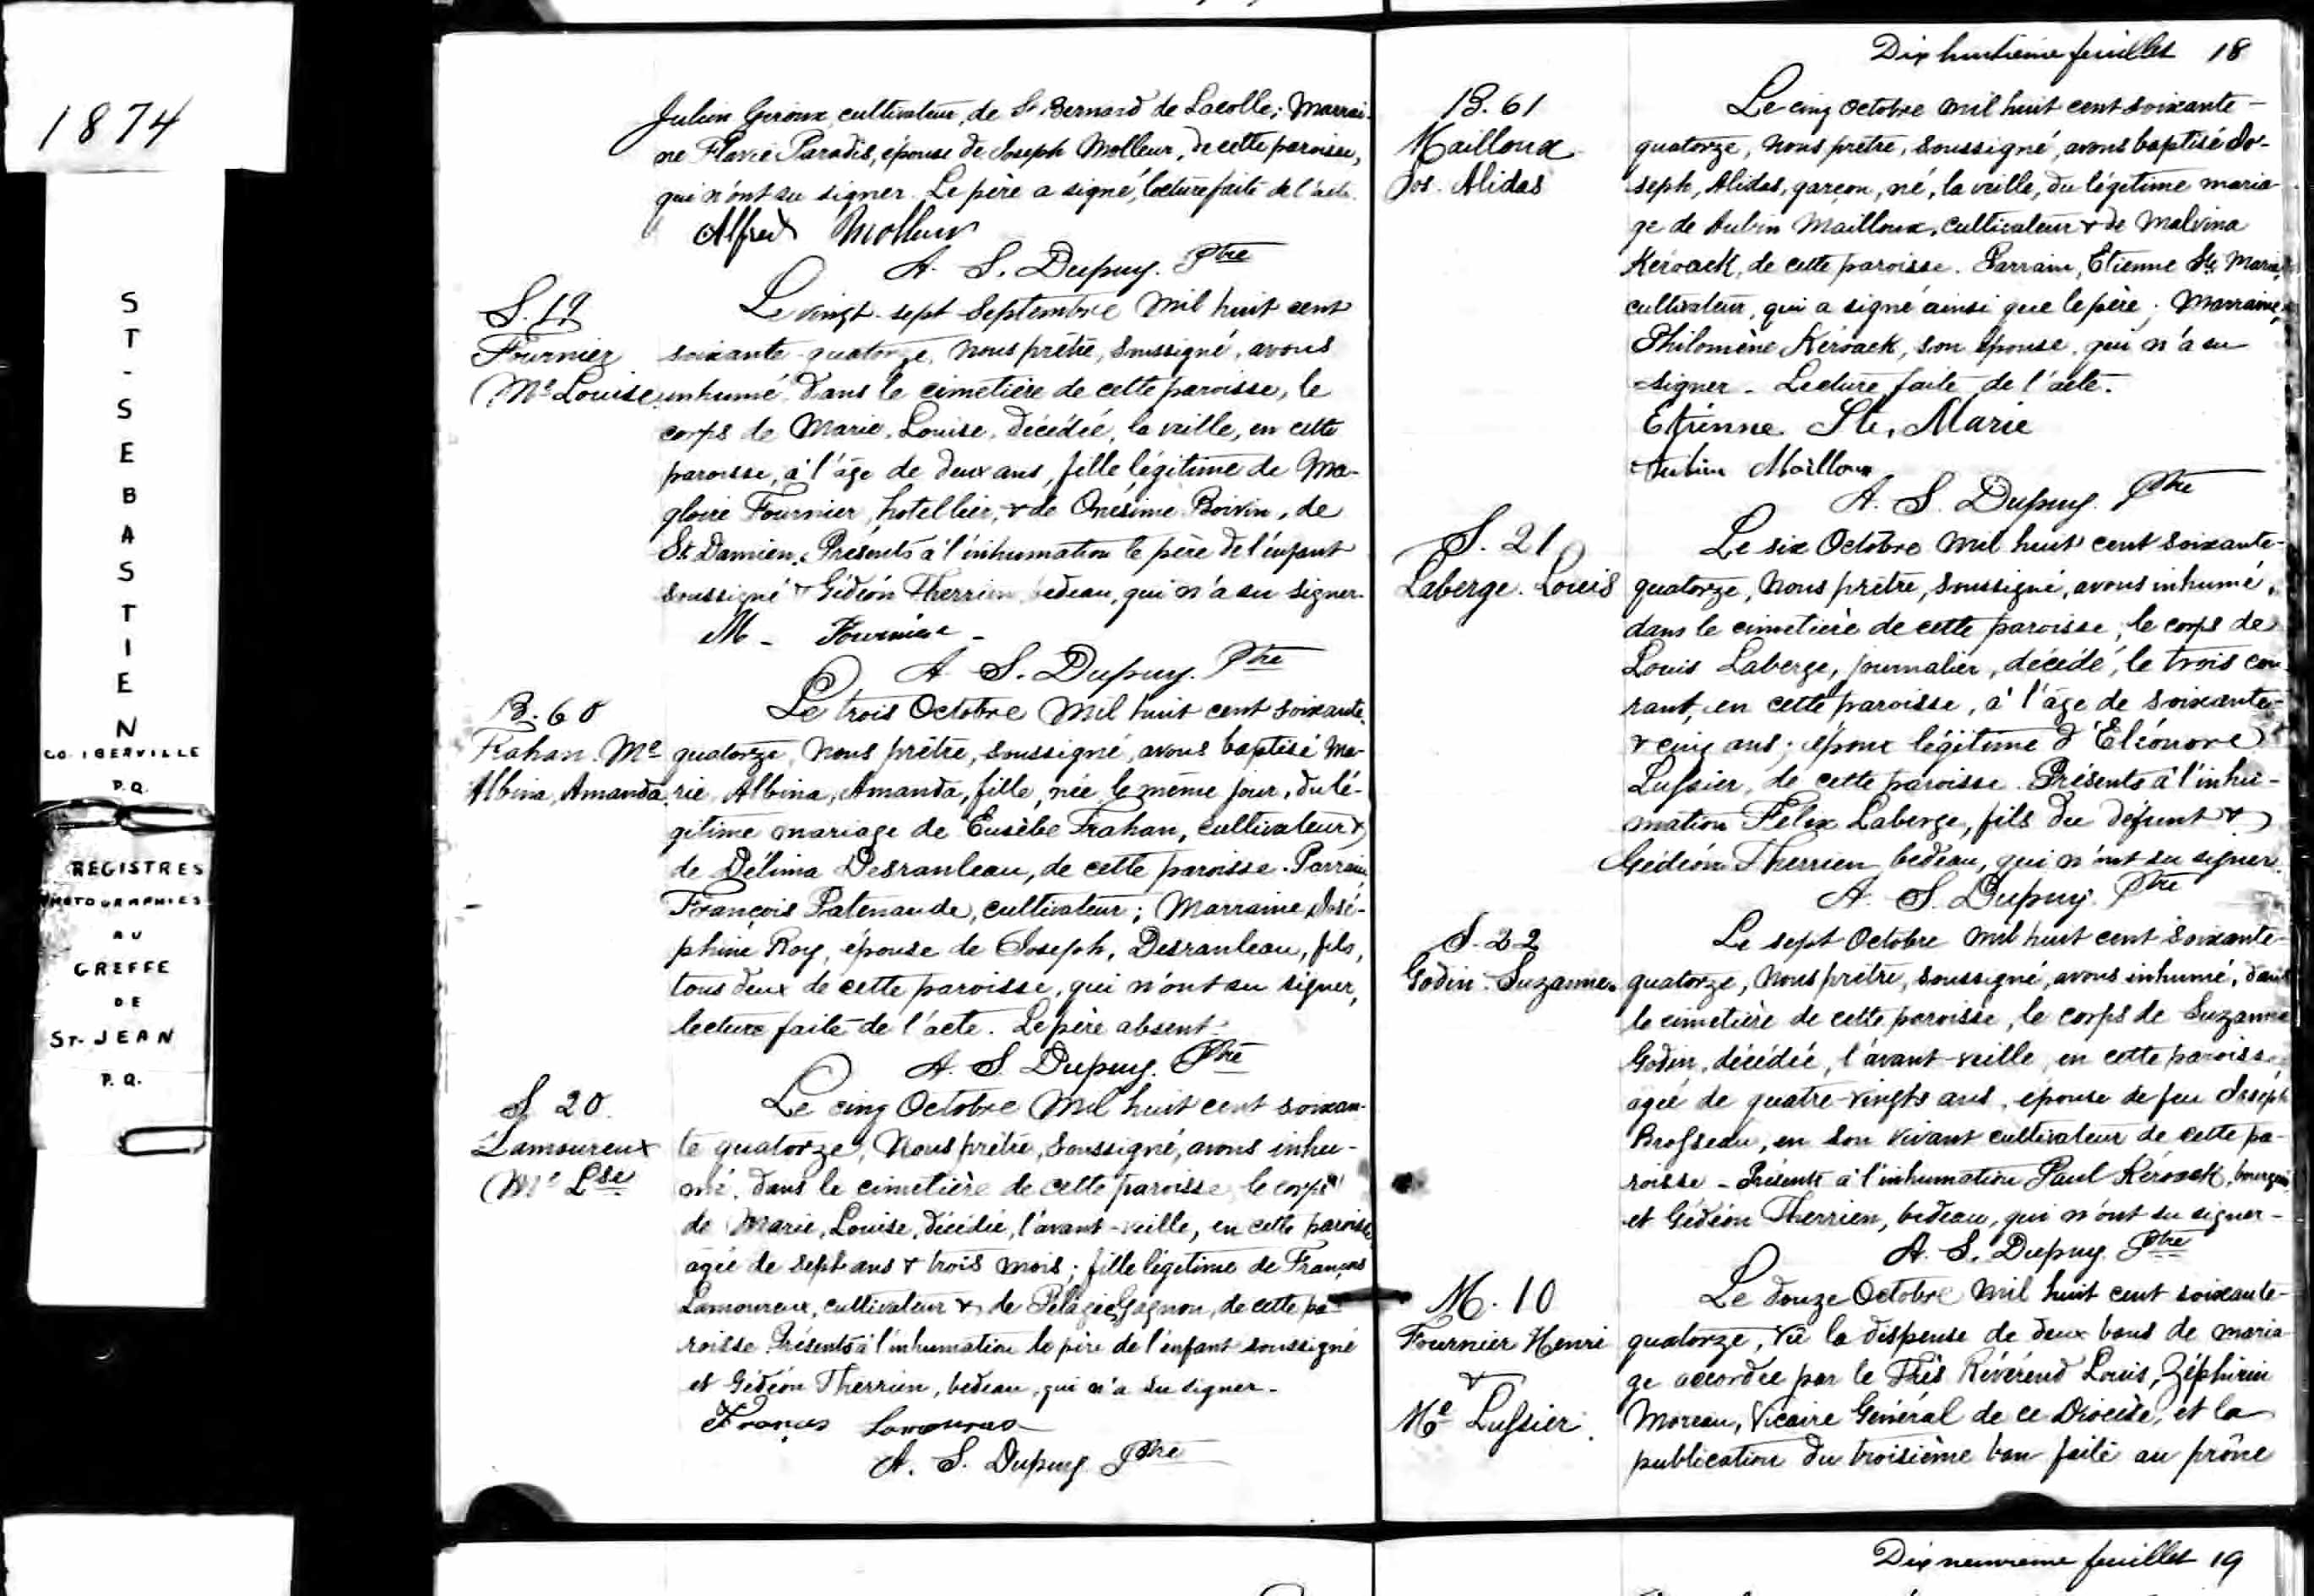 1874
ST-SEBASTIEN
CO. IBERVILLE
P.Q.
REGISTRES
PHOTOGRAPHIES
AU
GREFFE
DE
ST-JEAN
P.Q.
Julien Giroux, cultivateur, de St. Bernard de Lacolle; Marrai-
ne Flavie Paradis, épouse de Joseph Molleur, de cette paroisse,
qui n'ont su signer. Le père a signé, lecture faite de l'acte.
Alfred Molleur
A. S. Dupuy. Ptre
S. 19
Fournier
Me Louise
Le vingt-sept Septembre mil huit cent
soixante-quatorze, Nous prêtre, soussigné, avons
inhumé dans le cimetière de cette paroisse, le
corps de Marie, Louise, décédée, la veille, en cette
paroisse, à l'âge de deux ans, fille légitime de Ma-
gloire Fournier, hotellier, & de Onésime Boivin, de
St. Damien. Présents à l'inhumation le père de l'enfant
soussigné & Gédéon Therrien, bedeau, qui n'a su signer.
M- Fournier-
A. S. Dupuy. Ptre
B. 60
Trahan. Me
Albina, Amanda
Le trois Octobre mil huit cent soixante-
quatorze, Nous prêtre, soussigné, avons baptisé Ma-
rie, Albina, Amanda, fille, née, le même jour, du lé-
gitime mariage de Eusèbe Trahan, cultivateur &
de Délima Desranleau, de cette paroisse. Parrain,
François Patenaude, cultivateur; Marraine, José-
phine Roy, épouse de Joseph, Desranleau, fils,
tous deux de cette paroisse, qui n'ont su signer,
lecture faite de l'acte. Le père absent.
A. S. Dupuy. Ptre
S 20.
Lamoureux
Me Lse
Le cinq Octobre mil huit cent soixan-
te quatorze, Nous prêtre, soussigné, avons inhu-
mé, dans le cimetière de cette paroisse, le corps
de Marie, Louise, décédée, l'avant-veille, en cette paroisse
agée de sept ans & trois mois; fille légitime de François
Lamoureux, cultivateur & de Pélagie Gagnon, de cette pa-
roisse. Présents à l'inhumation le père de l'enfant soussigné
et Gédéon Therrien, bedeau, qui n'a su signer-
A. S. Dupuy Ptre
Dix huitième feuillet 18
B. 61
Mailloux
Jos. Alidas
Le cinq Octobre mil huit cent soixante-
quatorze, nous prêtre, soussigné, avons baptisé Jo-
seph, Alidas, garçon, né, la veille, du légitime maria-
ge de Aubin Mailloux, cultivateur & de Malvina
Kéroack, de cette paroisse. Parrain, Etienne Ste Marie,
cultivateur, qui a signé ainsi que le père; Marraine,
Philomène Kéroack, son épouse, qui n'a su
signer- Lecture faite de l'acte.
Etienne Ste, Marie
Aubin Mailloux
A. S. Dupuy. Ptre
S. 21
Laberge. Louis
Le six Octobre mil huit cent soixante-
quatorze, Nous prêtre, soussigné, avons inhumé,
dans le cimetière de cette paroisse, le corps de
Louis Laberge, journalier, décédé, le trois cou-
rant, en cette paroisse, à l'âge de soixante-
& cinq ans; époux légitime d'Eléonore
Lussier, de cette paroisse. Présents à l'inhu-
mation Félix Laberge, fils du défunt &
Gédéon Therrien bedeau, qui n'ont su signer.
A. S. Dupuy. Ptre
S. 22
Godin. Suzanne.
Le sept Octobre mil huit cent soixante-
quatorze, Nous prêtre, soussigné, avons inhumé, dans
le cimetière de cette paroisse, le corps de Suzanne
Godin, décédée, l'avant-veille, en cette paroisse,
agée de quatre-vingts ans, épouse de feu Joseph
Brosseau, en son vivant cultivateur de cette pa-
roisse- Présents à l'inhumation Paul Kéroack, bourgeois
et Gédéon Therrien, bedeau, qui n'ont su signer-
A. S. Dupuy. Ptre
M. 10
Fournier Henri
&
Me Lussier.
Le douze Octobre mil huit cent soixante-
quatorze, vu la dispense de deux bans de maria-
ge accordée par le Très Révérend Louis, Zéphirin
Moreau, Vicaire Général de ce Diocèse, et la
publication du troisième ban faite au prône
Dix neuvième feuillet 19